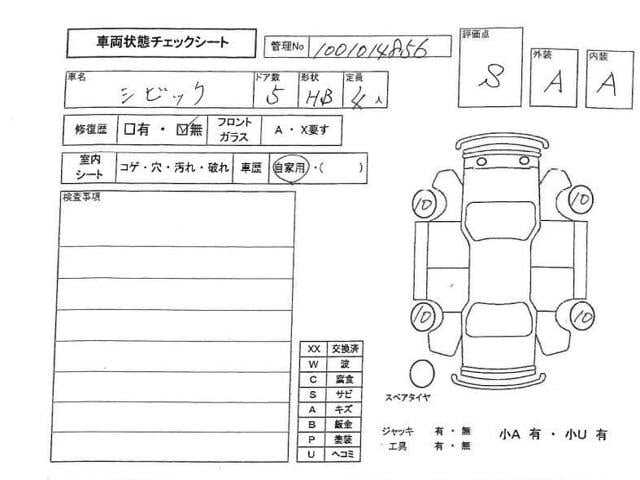 車両状態チェックシート 管理No 1001014856 評価点 S 外装 A 内装 A
車名 シビック ドア数 5 形状 HB 定員 4人
修復歴 □有・☑無 フロントガラス A・X要す
室内シート コゲ・穴・汚れ・破れ 車歴 自家用・( )
検査事項
10 10
10 10
XX 交換済
W 波
C 腐食
S サビ
A キズ
B 鈑金
P 塗装
U ヘコミ
スペアタイヤ
ジャッキ 有・無 小A 有・小U 有
工具 有・無